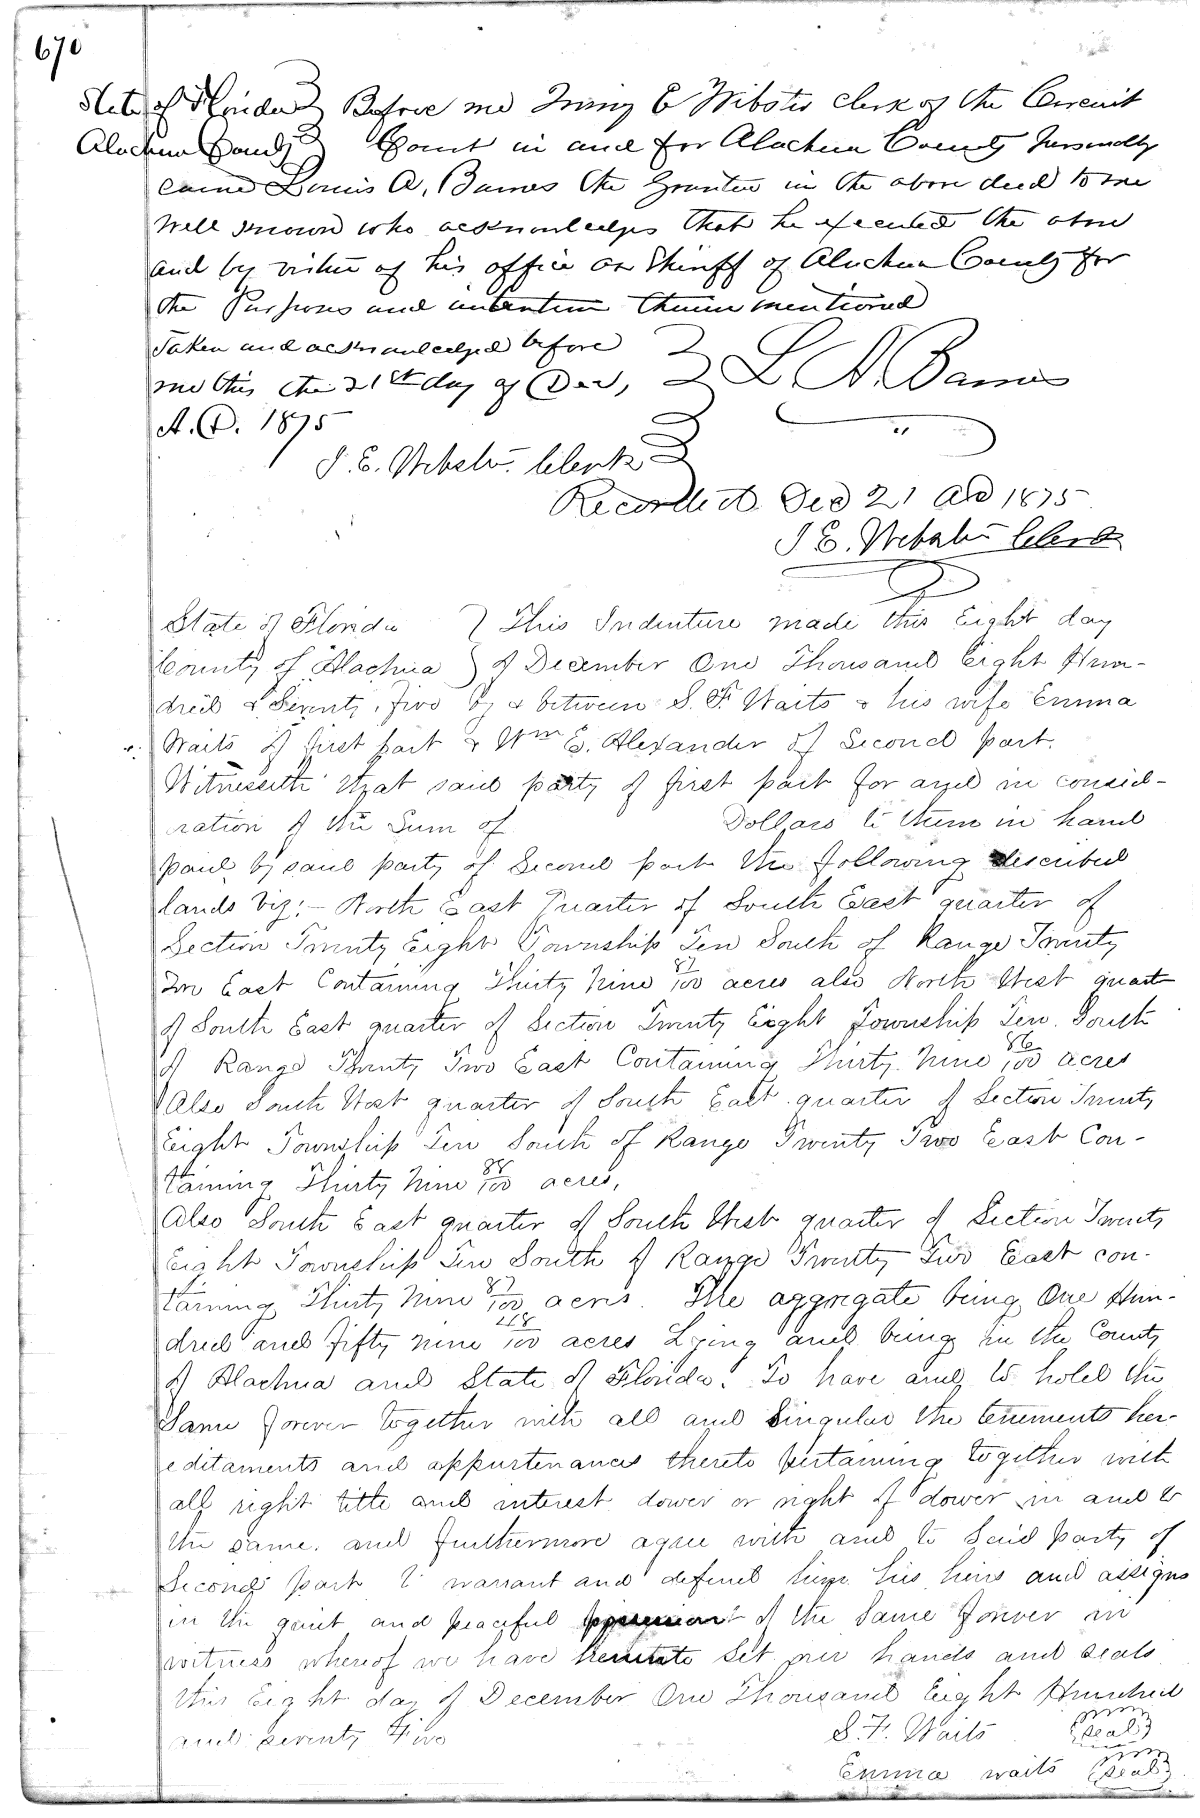 670
State of Florida } Before me Irving E Webster clerk of the Circuit
Alachua County } Court in and for Alachua County personally
came Louis A, Barnes the Grantee in the above deed to me
well known who acknowledges that he executed the above
and by virtue of his office as Sheriff of Alachua County for
the Purposes and intention therein mentioned
Taken and acknowledged before } L. A. Barnes
me this the 21st day of Dec,
A. D. 1875
I. E. Webster Clerk
Recorded Dec 21 AD 1875
I E. Webster Clerk
State of Florida } This Indenture made this Eight day
County of Alachua } of December One Thousand Eight Hun-
dred & Seventy, five by & between S. F. Waits & his wife Emma
Waits of first part & Wm E. Alexander of Second part.
Witnesseth that said party of first part for and in consid-
ration of the Sum of Dollars to them in hand
paid by said party of Second part the following described
lands Viz:- North East Quarter of South East quarter of
Section Twenty Eight Township Ten South of Range Twenty
Two East Containing Thirty Nine 87/100 acres also North West quart
of South East quarter of Section Twenty Eight Township Ten South
of Range Twenty Two East Containing Thirty Nine 86/100 acres
Also South West quarter of South East quarter of Section Twenty
Eight Township Ten South of Range Twenty Two East Con-
taining Thirty Nine 88/100 acres,
Also South East quarter of South West quarter of Section Twenty
Eight Township Ten South of Range Twenty Two East con-
taining Thirty Nine 87/100 acres. The aggregate being One Hun-
dred and fifty nine 48/100 acres Lying and being in the County
of Alachua and State of Florida. To have and to hold the
Same forever together with all and Singular the tenements her-
editaments and appurtenances thereto pertaining together with
all right title and interest dower or right of dower in and to
the same. and furthermore agree with and to Said party of
Second part to warrant and defend him his heirs and assigns
in the quiet and peaceful of the Same forever in
witness whereof we have hereunto Set our hands and seals
this Eight day of December One Thousand Eight Hundred
and seventy Five S. F. Waits (seal)
Emma waits (seal)